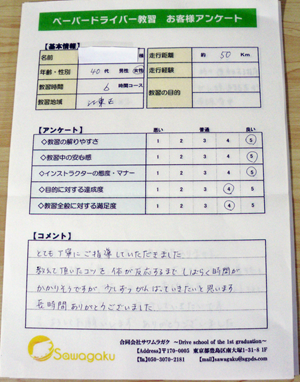 ペーパードライバー教習 お客様アンケート
【基本情報】
名前 様 走行距離 約 50 Km
年齢・性別 40代 男性 女性 走行経験
教習時間 6 時間コース 教習の目的
教習地域 江東区
【アンケート】 悪い 普通 良い
◇教習の解りやすさ 1 2 3 4 5
◇教習中の安心感 1 2 3 4 5
◇インストラクターの態度・マナー 1 2 3 4 5
◇目的に対する達成度 1 2 3 4 5
◇教習全般に対する満足度 1 2 3 4 5
【コメント】
とても丁寧にご指導していただきました
教えて頂いたコツを体が反応するまでしばらく時間が
かかりそうですが、少しずつがんばっていきたいと思います
長時間ありがとうございました
Sawagaku
合同会社サワムラガク ～Drive school of the 1st graduation～
【Address】〒170-0005 東京都豊島区南大塚1-31-8 1F
【Tel】050-3070-2181 【mail】sawagaku@sgyds.com